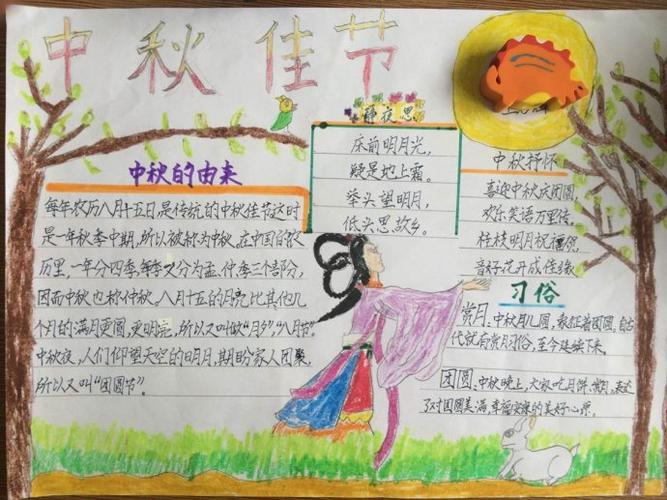 中秋佳节
中秋的由来
每年农历八月十五日,是传统的中秋佳节这时
是一年秋季中期,所以被称为中秋。在中国的农
历里,一年分四季,每季又分为孟、仲、季三个部分,
因而中秋也称仲秋。八月十五的月亮比其他几
个月的满月更圆,更明亮,所以又叫做“月夕”,“八月节”。
中秋夜,人们仰望天空的明月,期盼家人团聚,
所以又叫“团圆节”。
静夜思
床前明月光,
疑是地上霜。
举头望明月,
低头思故乡。
中秋抒怀
喜迎中秋庆团圆,
欢乐笑语万里传,
桂枝明月祝福你,
音好花开成佳缘
习俗
赏月:中秋月儿圆,象征着团圆,自古
代就有赏月习俗,至今延续下来。
团圆:中秋晚上,大家吃月饼,赏月,表达
了对团圆美满,幸福安康的美好心愿。